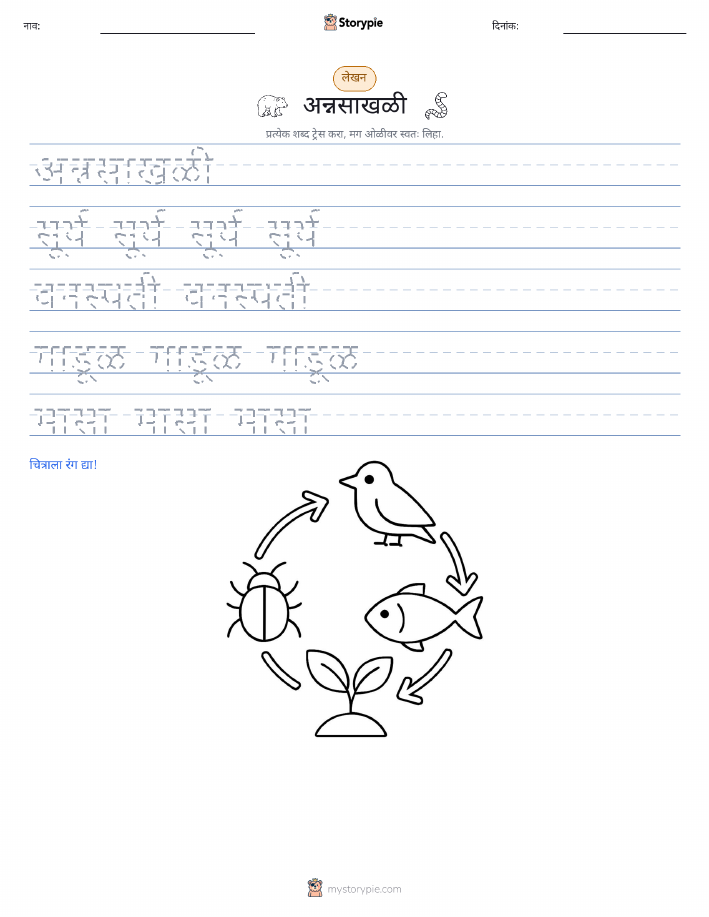 नाव: Storypie दिनांक:
लेखन
अन्नसाखळी
प्रत्येक शब्द ट्रेस करा, मग ओळीवर स्वतः लिहा.
अन्नसाखळी
सूर्य सूर्य सूर्य सूर्य
वनस्पती वनस्पती
गांडूळ गांडूळ गांडूळ
मासा मासा मासा
चित्राला रंग द्या!
mystorypie.com